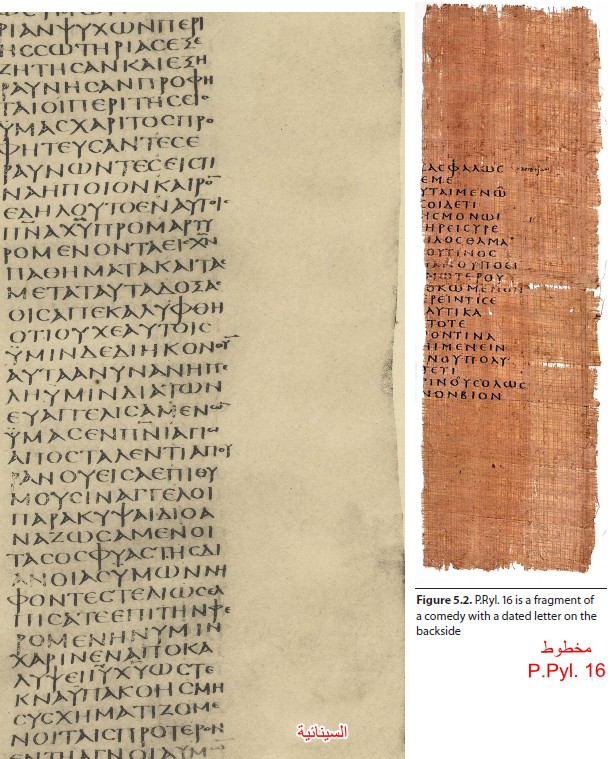 ΡΙΑΝΨΥΧΩΝΠΕΡΙ
ΗϹϹΩΤΗΡΙΑϹΕΞΕ
ΖΗΤΗϹΑΝΚΑΙΕΞΗ
ΡΑΥΝΗϹΑΝΠΡΟΦΗ
ΤΑΙΟΙΠΕΡΙΤΗϹΕΙϹ
ΫΜΑϹΧΑΡΙΤΟϹΠΡΟ
ΦΗΤΕΥϹΑΝΤΕϹΕ
ΡΑΥΝΩΝΤΕϹΕΙϹΤΙ
ΝΑΗΠΟΙΟΝΚΑΙΡΟ̅
ΕΔΗΛΟΥΤΟΕΝΑΥΤΟΙϹ
Π̅Ν̅Α̅Χ̅Υ̅ΠΡΟΜΑΡΤΥ
ΡΟΜΕΝΟΝΤΑΕΙϹΧ̅Ν̅
ΠΑΘΗΜΑΤΑΚΑΙΤΑϹ
ΜΕΤΑΤΑΥΤΑΔΟΞΑϹ
ΟΙϹΑΠΕΚΑΛΥΦΘΗ
ΟΤΙΟΥΧΕΑΥΤΟΙϹ
ΫΜΙΝΔΕΔΙΗΚΟΝΟΥ̅
ΑΥΤΑΑΝΥΝΑΝΗΓΓΕ
ΛΗΥΜΙΝΔΙΑΤΩΝ
ΕΥΑΓΓΕΛΙϹΑΜΕΝΩ̅
ΫΜΑϹΕΝΠ̅Ν̅Ι̅ΑΓΙΩ
ΑΠΟϹΤΑΛΕΝΤΙΑΠΟΥ
ΡΑΝΟΥΕΙϹΑΕΠΙΘΥ
ΜΟΥϹΙΝΑΓΓΕΛΟΙ
ΠΑΡΑΚΥΨΑΙΔΙΟΑ
ΝΑΖΩϹΑΜΕΝΟΙ
ΤΑϹΟϹΦΥΑϹΤΗϹΔΙ
ΑΝΟΙΑϹΥΜΩΝΝΗ
ΦΟΝΤΕϹΤΕΛΙΩϹΕΛ
ΠΙϹΑΤΕΕΠΙΤΗΝΦΕ
ΡΟΜΕΝΗΝΥΜΙΝ
ΧΑΡΙΝΕΝΑΠΟΚΑ
ΛΥΨΕΙΙ̅Υ̅Χ̅Υ̅ΩϹΤΕ
ΚΝΑΫΠΑΚΟΗϹΜΗ
ϹΥϹΧΗΜΑΤΙΖΟΜΕ
ΝΟΙΤΑΙϹΠΡΟΤΕΡΟΝ
ΕΝΤΗΑΓΝΟΙΑΥΜΩ̅
السينائية
ΑϹΦΑΛΩϹ
ΕΜΕ
ΥΤΑΙΜΕΝΩ̅
ϹΟΙΔΕΤΙ
ΗϹΜΟΝΩΙ
ΗΡΕΙϹΥΡΕ
ΙΛΟϹΘΑΜΑ
ΟΥΤΙΝΟϹ
ΩΤΕΡΟΥ
ΟΚΩΜΕΝΟΝ
ΡΕΙΝΤΙϹΕ
ΑΥΤΙΚΑ
ΤΟΤΕ
ΟΝΤΙΝΑ
ΗΙΜΕΝΕΙΝ
ΝΟΥΠΟΛΥ
ΕΤΙ
ΙΝΟΥϹΟΛΩϹ
ΝΟΝΒΙΟΝ
Figure 5.2. P.Ryl. 16 is a fragment of
a comedy with a dated letter on the
backside
مخطوط
P.Pyl. 16